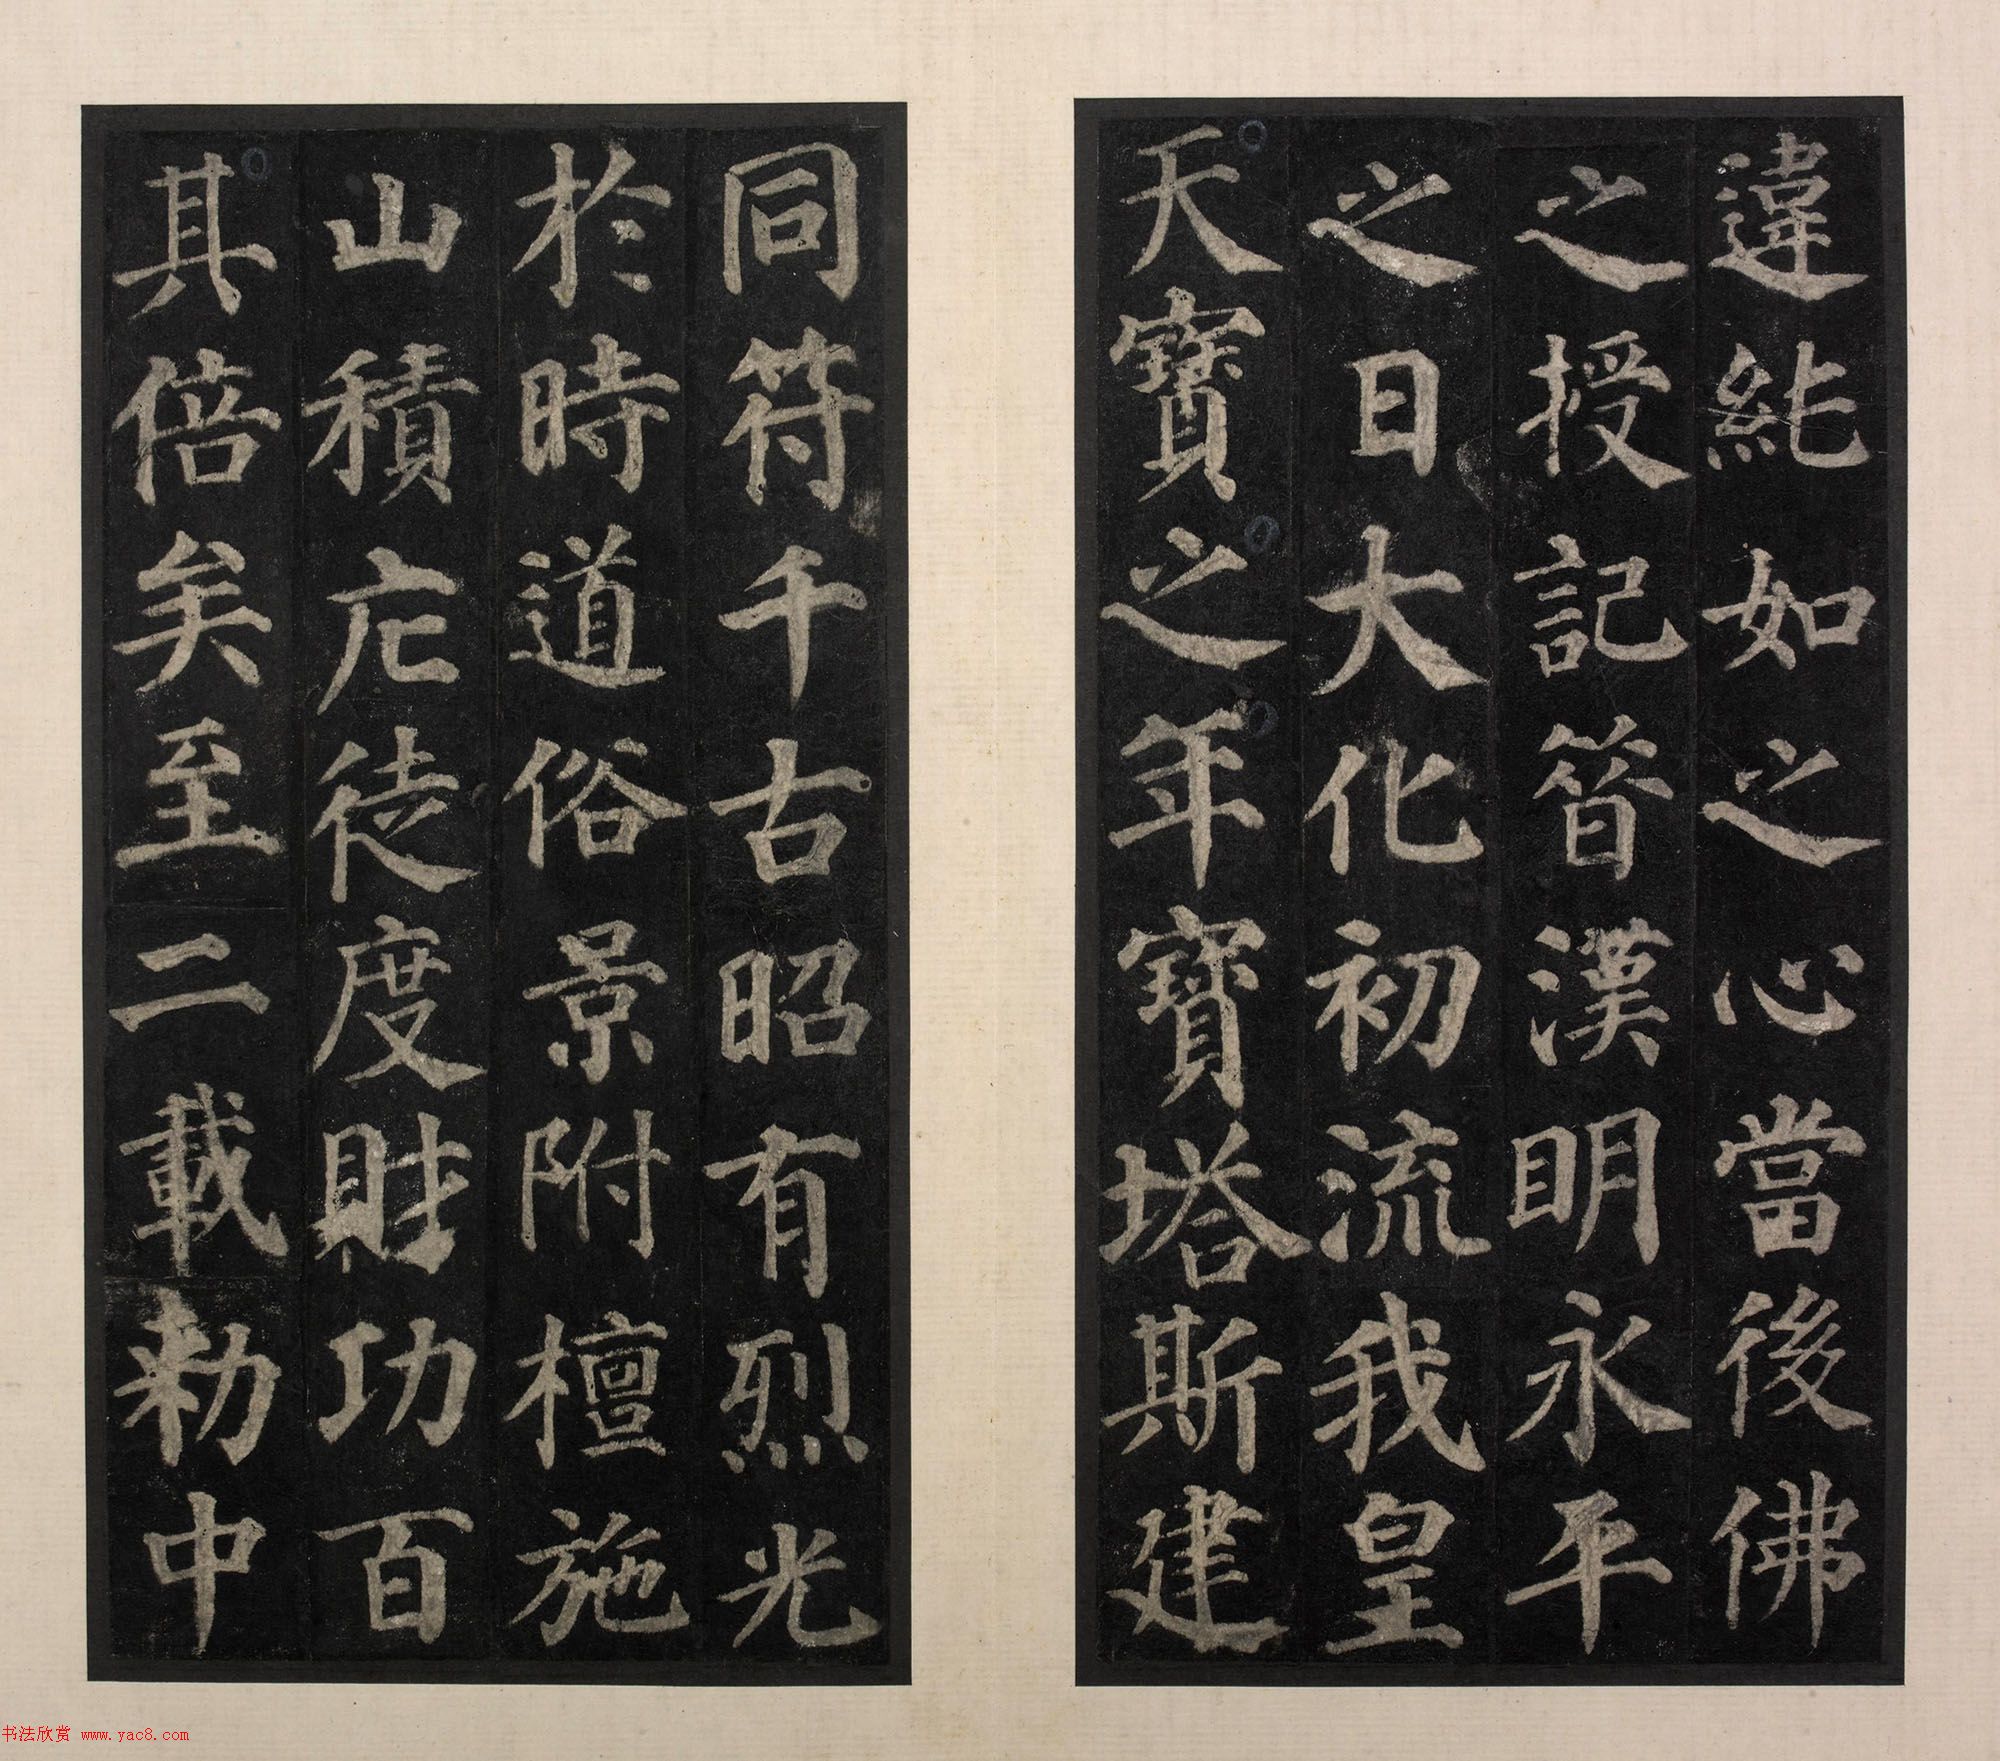 違純如之心當後佛
之授記昝漢明永平
之日大化初流我皇
天寶之年寶塔斯建
同符千古昭有烈光
於時道俗景附檀施
山積庀徒度財功百
其倍矣至二載勑中
书法欣赏 www.yac8.com